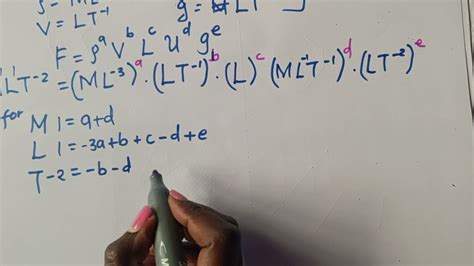 V = LT⁻¹ g = LT⁻²
F = ρᵃ Vᵇ Lᶜ Uᵈ gᵉ
L¹T⁻² = (ML⁻³)ᵃ · (LT⁻¹)ᵇ · (L)ᶜ (ML⁻¹T⁻¹)ᵈ · (LT⁻²)ᵉ
for M 1 = a+d
L 1 = -3a+b+c-d+e
T -2 = -b-d